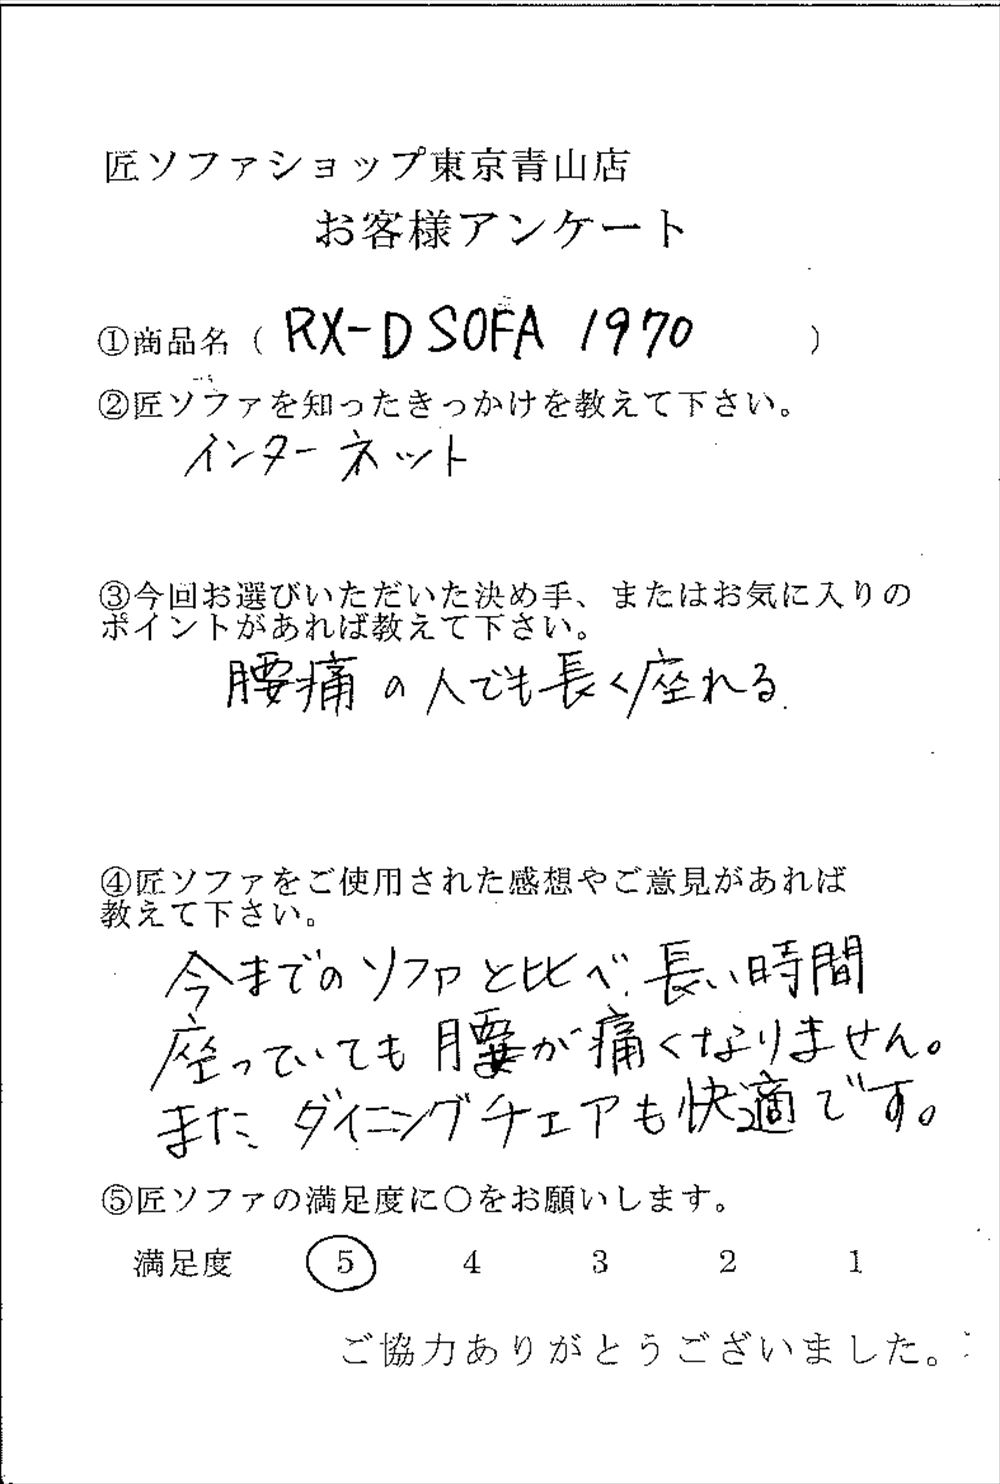 匠ソファショップ東京青山店
お客様アンケート
①商品名（ RX-D SOFA 1970 ）
②匠ソファを知ったきっかけを教えて下さい。
インターネット
③今回お選びいただいた決め手、またはお気に入りの
ポイントがあれば教えて下さい。
腰痛の人でも長く座れる.
④匠ソファをご使用された感想やご意見があれば
教えて下さい。
今までのソファと比べ、長い時間
座っていても腰が痛くなりません。
また、ダイニングチェアも快適です。
⑤匠ソファの満足度に○をお願いします。
満足度 5 4 3 2 1
ご協力ありがとうございました。